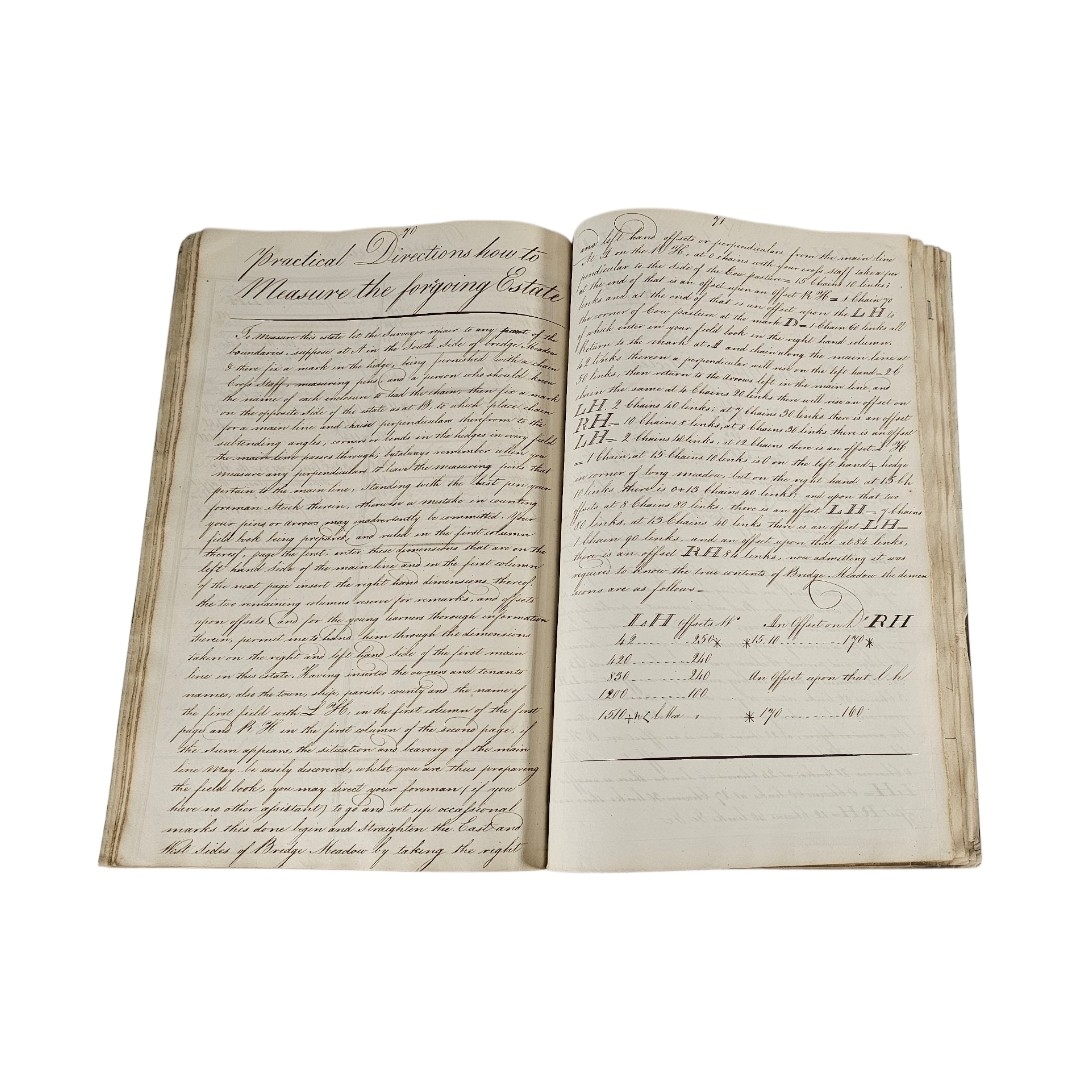 70
Practical Directions how to
Measure the forgoing Estate
To measure this estate let the Surveyor repair to any part of the
boundaries, suppose at A in the South Side of Bridge Meadow
& there fix a mark in the hedge, being furnished with a chain
Cross Staff, measuring pins (and a person who should know
the name of each inclosure to lead the chain, then fix a mark
on the opposite side of the estate as at B, to which place chain
for a main line and raise perpendiculars therefrom to the
subtending angles, corners or bends in the hedges in every field
the main line passes through; but always remember when you
measure any perpendicular to leave the measuring pins that
pertain to the main line, Standing with the last pin your
foreman Stuck therein, otherwise a mistake in counting
your pins or arrows may inadvertently be committed. Your
field book being prepared, and ruled in the first column
thereof, page the first, enter these dimensions that are on the
left hand Side of the main line and in the first column
of the next page insert the right hand demensions, thereof
the two remaining columns reserve for remarks, and offsets
upon offsets (and for the young learners thorough information
therein, permit me to hand him through the demensions
taken on the right and left hand Side of the first main
line in this Estate. Having inserted the owners and tenants
names, also the town, ship, parish, county and the name of
the first field with L H, in the first column of the first
page and R H in the first column of the second page. if
the Sum appears, the situation and bearing of the main
line may be easily discovered, whilst you are thus preparing
the field book, you may direct your foreman (if you
have no other assistant) to go and set up occasional
marks this done begin and Straighten the East and
West Sides of Bridge Meadow by taking the right
71
and left hand offsets or perpendiculars from the main line
A on the R H, at 0 chains with your cross staff take a per
pendicular to the side of the Cow pasture = 15 Chains 10 links;
at the end of that is an offset upon an offset R H = 1 Chain 70
links and at the end of that is an offset upon the L H to
the corner of Cow pasture at the mark D = 1 Chain 61 links all
of which enter in your field book in the right hand column.
Return to the mark at A and chain along the main line at
42 links thereon a perpendicular will rise on the left hand = 2 C
50 links, then return to the arrows left in the main line and
chain the same at 4 Chains 20 links there will rise an offset on
LH 2 Chains 40 links; at 7 Chains 30 links there is an offset
RH = 10 Chains links, at 8 Chains 36 links there is an offset
LH = 2 Chains 40 links, at 12 Chains there is an offset L H
= 1 Chain, at 15 Chains 10 links is 0 on the left hand + hedge
in corner of long meadow, but on the right hand, at 15 Ch
10 links there is 0 + 13 Chains 40 links; and upon that two
offsets at 8 Chains 80 links, there is an offset LH = 7 Chains
80 links, at 13 Chains 40 links there is an offset LH =
1 Chain 90 links and an offset upon that at 84 links,
there is an offset RH 84 links, now admitting it was
required to know the true contents of Bridge Meadow the demen
sions are as follows =
LH Offsets An Offset on RH
42 250* *15.10 170*
420 240
830 240 An Offset upon that
1200 100
1510 *170 160